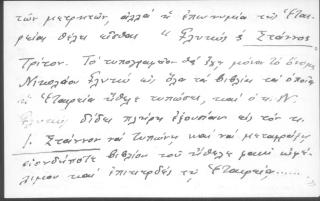 τῶν μετρητῶν, ἀλλὰ ἡ ἐπωνυμία τῆς Ἑται-
ρείας θέλει εἶσθαι " Γλυκὺς & Στάννος
Τρίτον. Τὸ τυπογραφεῖον θὰ ἔχῃ μόνον τὸ ὄνομα
Νικολάου Γλυκὺ εἰς ὅλα τὰ βιβλία τὰ ὁποῖα
ἡ Ἑταιρεία ἤθελε τυπώσει, καὶ ὁ κ. Ν.
Γλυκὺς δίδει πλήρη ἐξουσίαν εἰς τὸν κ.
Ι. Στάννον νὰ τυπώνῃ καὶ νὰ μεταφράζῃ
οἱονδήποτε βιβλίον τοῦ ἤθελε φανῆ ὠφέ-
λιμον καὶ ἐπικερδὲς τῇ Ἑταιρείᾳ......